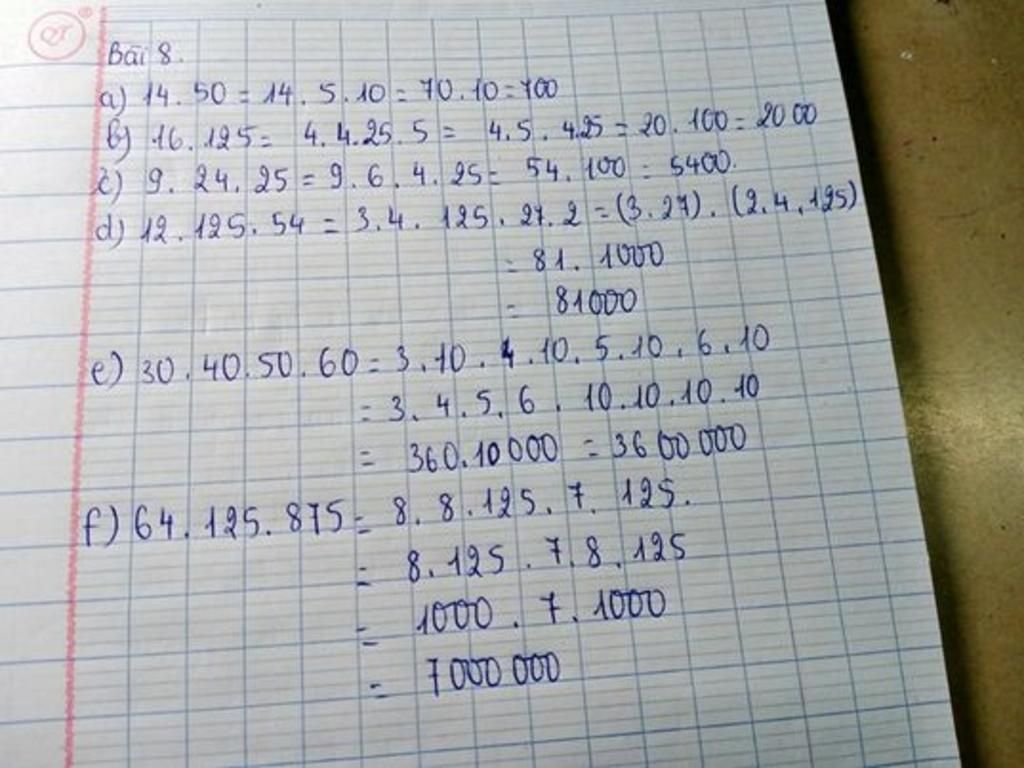 QT
Bài 8.
a) 14.50 = 14.5.10 = 70.10 = 700
b) 16.125 = 4.4.25.5 = 4.5.4.25 = 20.100 = 2000
c) 9.24.25 = 9.6.4.25 = 54.100 = 5400.
d) 12.125.54 = 3.4.125.27.2 = (3.27).(2.4.125)
= 81.1000
= 81000
e) 30.40.50.60 = 3.10.4.10.5.10.6.10
= 3.4.5.6.10.10.10.10
= 360.10000 = 3600000
f) 64.125.875 = 8.8.125.7.125.
= 8.125.7.8.125
= 1000.7.1000
= 7000000